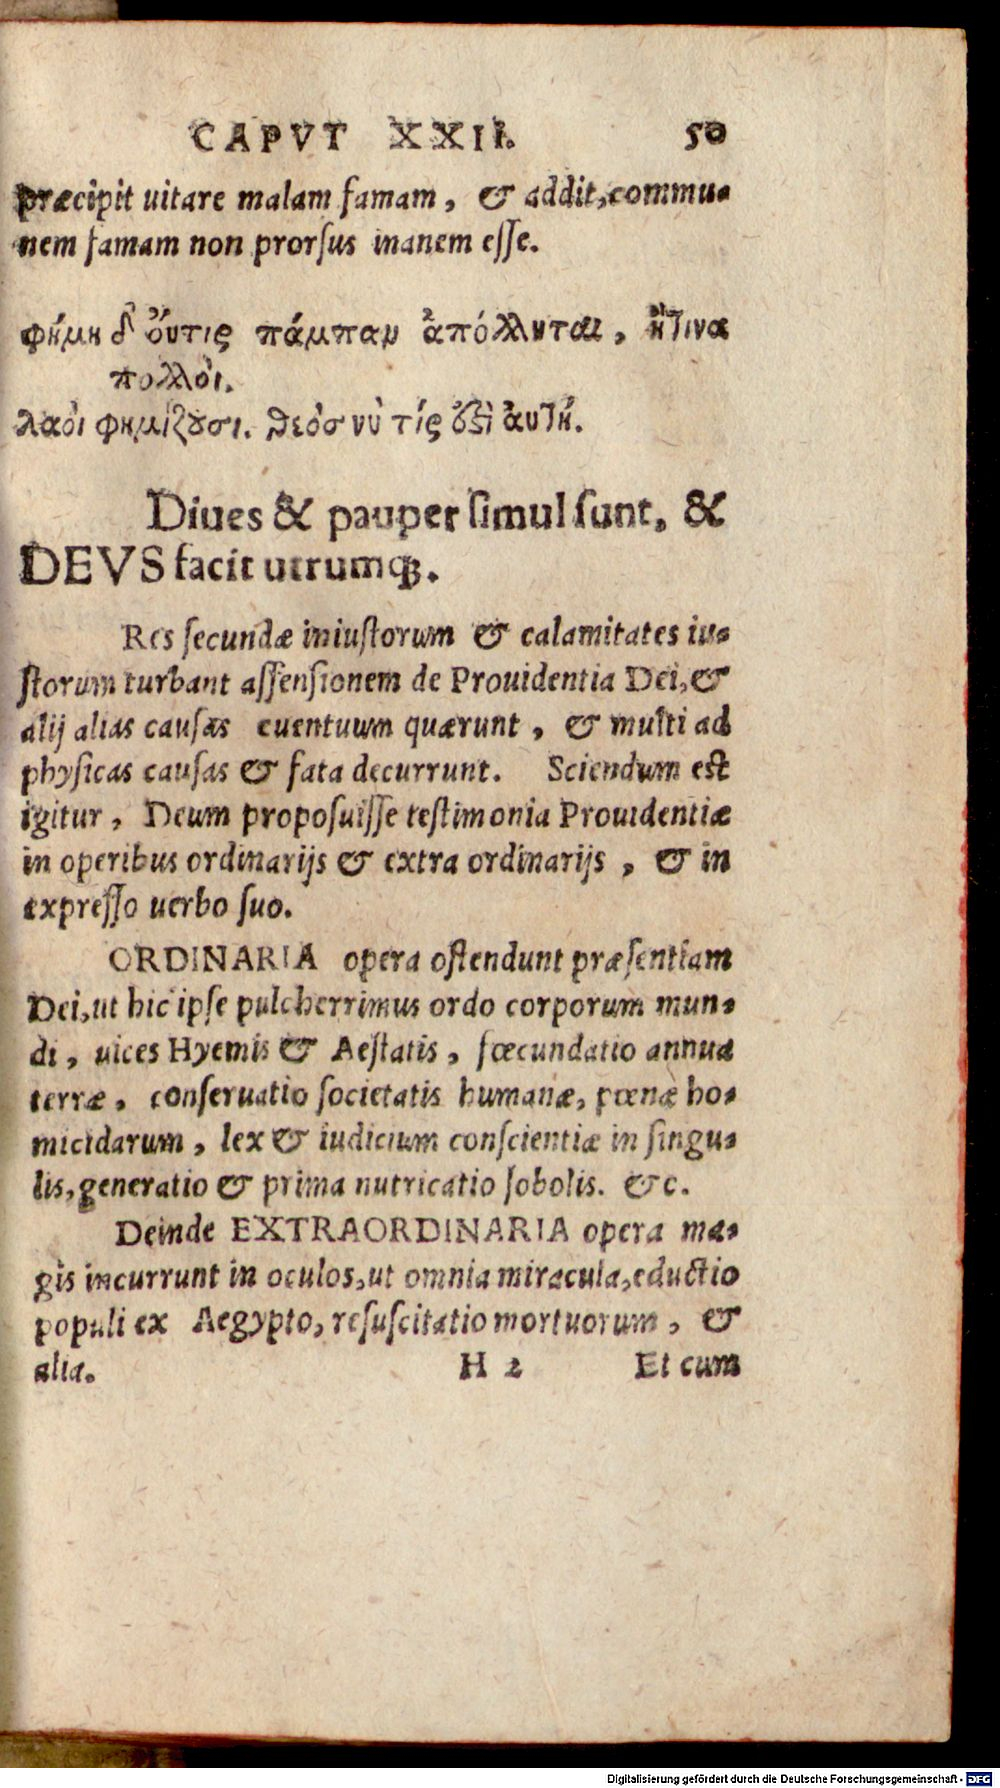 CAPVT XXII. 50
præcipit uitare malam famam, & addit, commu-
nem famam non prorsus inanem esse.
φήμη δ' ὄυτις πάμπαν ἀπόλλυται, ἥτινα
πολλὸι.
λαὸι φημίζουσι. θεόσ νύ τίς ὅξὶ ἀυτή.
Diues & pauper simul sunt, &
DEVS facit utrumq;.
Res secundæ iniustorum & calamitates iu-
storum turbant assensionem de Prouidentia Dei, &
alij alias causas euentuum quærunt, & multi ad
physicas causas & fata decurrunt. Sciendum est
igitur, Deum proposuisse testimonia Prouidentiæ
in operibus ordinarijs & extra ordinarijs, & in
expresso uerbo suo.
ORDINARIA opera ostendunt præsentiam
Dei, ut hic ipse pulcherrimus ordo corporum mun-
di, uices Hyemis & Aestatis, fœcundatio annua
terræ, conseruatio societatis humanæ, pœnæ ho-
micidarum, lex & iudicium conscientiæ in singu-
lis, generatio & prima nutricatio sobolis. &c.
Deinde EXTRAORDINARIA opera ma-
gis incurrunt in oculos, ut omnia miracula, eductio
populi ex Aegypto, resuscitatio mortuorum, &
alia. H 2 Et cum
Digitalisierung gefördert durch die Deutsche Forschungsgemeinschaft - DFG